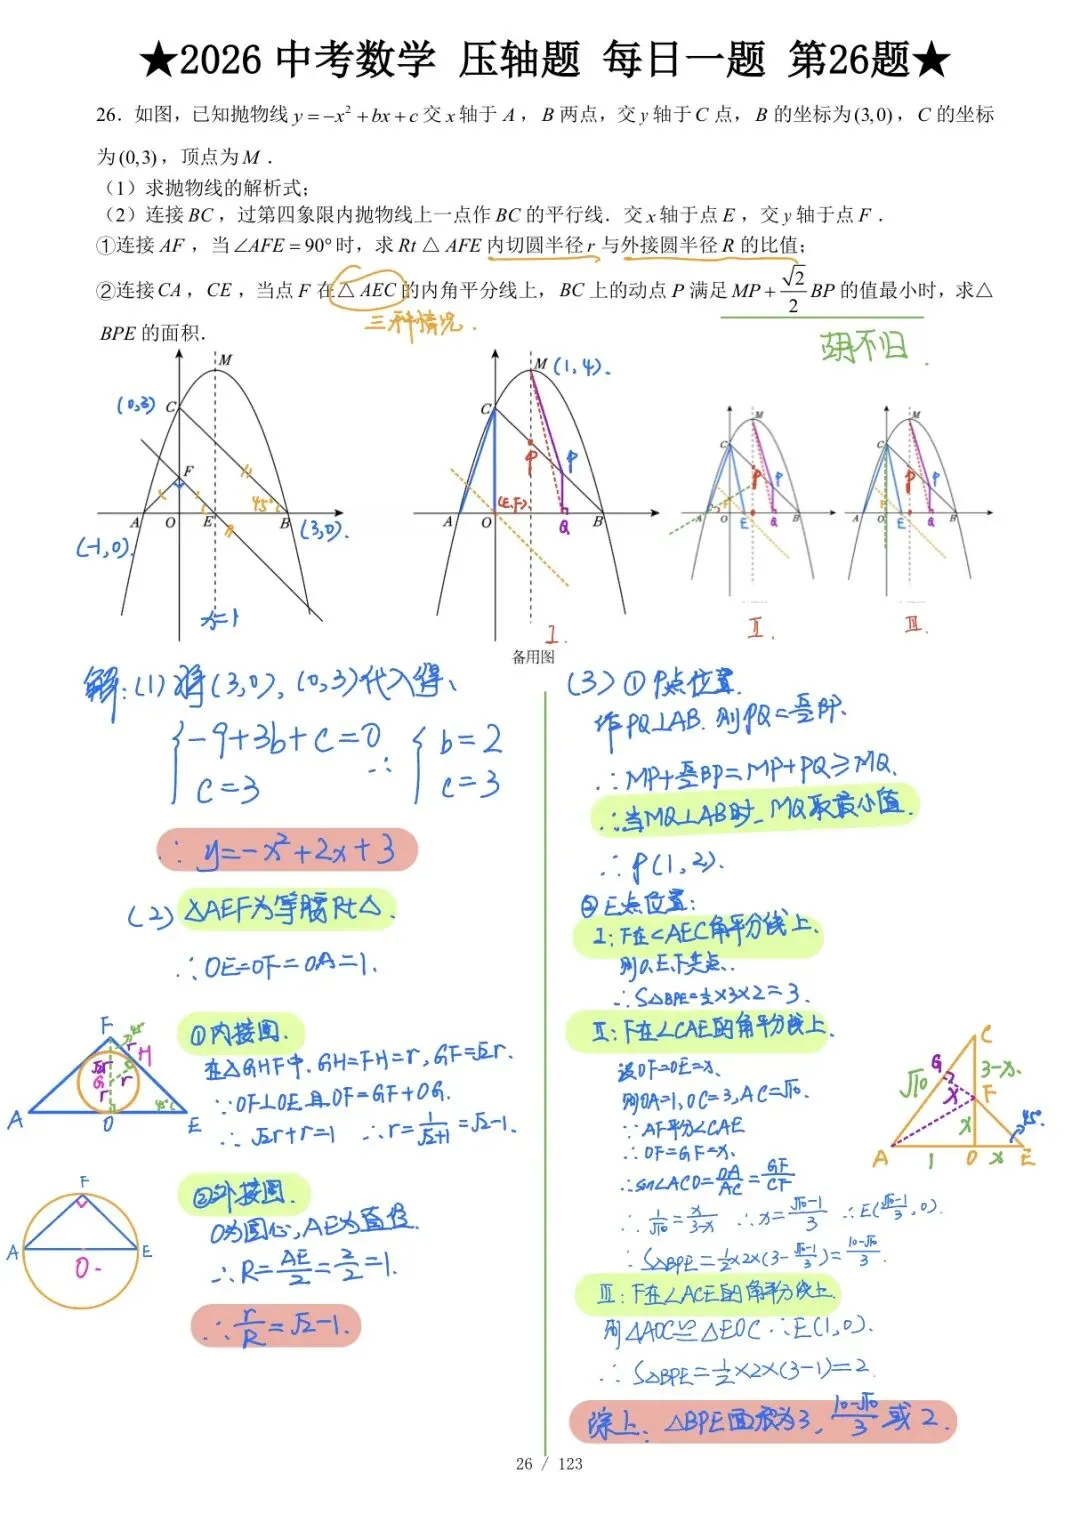 ★2026 中考数学 压轴题 每日一题 第26题★
26．如图，已知抛物线 y = −x² + bx + c 交 x 轴于 A，B 两点，交 y 轴于 C 点，B 的坐标为(3,0)，C 的坐标
为(0,3)，顶点为 M．
（1）求抛物线的解析式；
（2）连接 BC，过第四象限内抛物线上一点作 BC 的平行线．交 x 轴于点 E，交 y 轴于点 F．
①连接 AF，当∠AFE = 90°时，求 Rt△AFE 内切圆半径 r 与外接圆半径 R 的比值；
②连接 CA，CE，当点 F 在△AEC 的内角平分线上，BC 上的动点 P 满足 MP + √2/2 BP 的值最小时，求△
BPE 的面积．
三种情况．
胡不归．
M
(0,3) C
F
45°
A O E B
(-1,0) (3,0)
x=1
M (1,4).
C
P P
(E,F)
A O Q B
I.
M
C
P P
F
A E Q B
II.
M
C
P P
F
A E Q B
III.
备用图
解:(1)将(3,0),(0,3)代入得、
{-9+3b+c=0
c=3
∴ {b=2
c=3
∴ y=-x²+2x+3
(2) △AEF为等腰Rt△.
∴OE=OF=OA=1.
F 45°
H
√2r r
G r
r
45°
A O E
①内接圆.
在△GHF中.GH=FH=r,GF=√2r.
∵OF⊥OE 且OF=GF+OG.
∴√2r+r=1 ∴r=1/(√2+1)=√2-1.
F
A E
O
②外接圆.
O为圆心,AE为直径.
∴R=AE/2=2/2=1.
∴r/R=√2-1.
(3)①P点位置.
作PQ⊥AB.则PQ=√2/2BP.
∴MP+√2/2BP=MP+PQ≥MQ.
∴当MQ⊥AB时、MQ取最小值.
∴P(1,2).
②E点位置:
I:F在∠AEC角平分线上、
则O、E、F共点、
∴S△BPE=1/2×3×2=3.
II:F在∠CAE的角平分线上.
设OF=OE=x、
则OA=1,OC=3,AC=√10.
∵AF平分∠CAE
∴OF=GF=x、
∴sin∠ACO=OA/AC=GF/CF
∴1/√10=x/(3-x) ∴x=(√10-1)/3 ∴E((√10-1)/3,0).
∴S△BPE=1/2×2×(3-(√10-1)/3)=(10-√10)/3.
C
G
√10 3-x
x F
x 45°
A 1 O x E
III:F在∠ACE的角平分线上.
则△AOC≌△EOC∴E(1,0).
∴S△BPE=1/2×2×(3-1)=2.
综上、△BPE面积为3,(10-√10)/3或2.
26 / 123